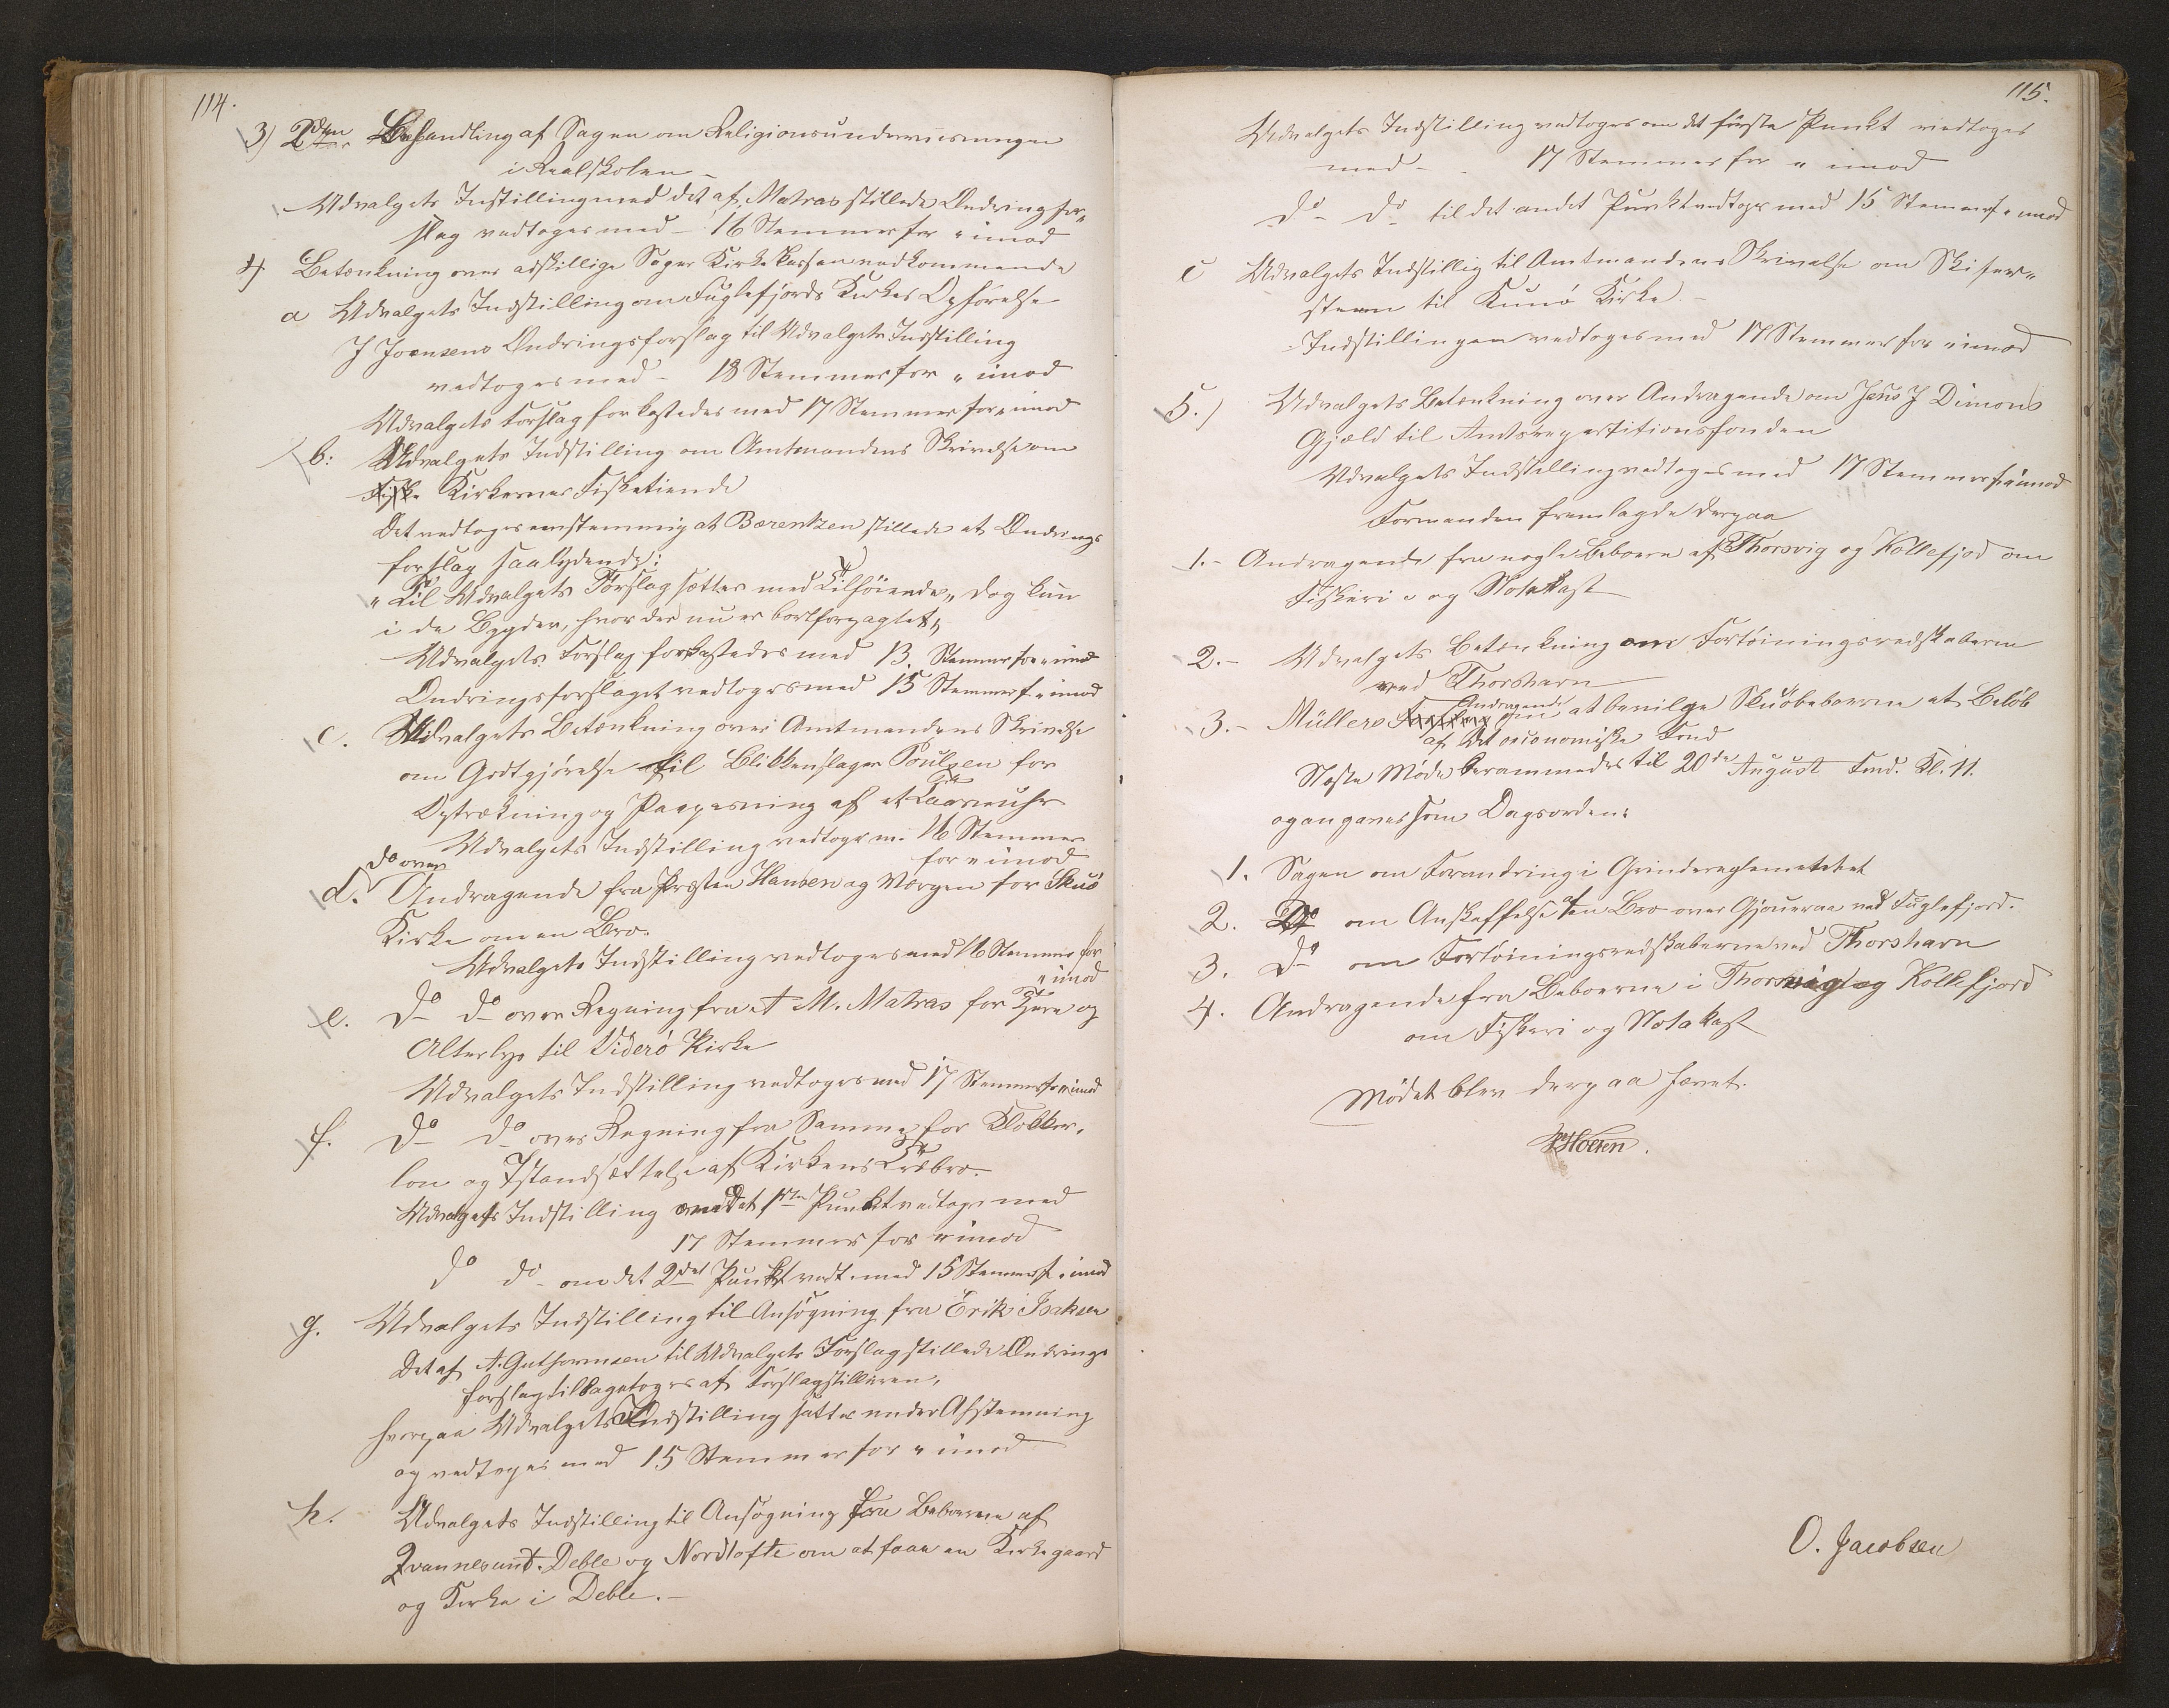 114.
3) 2den Behandling af Sagen om Religionsundervisningen
i Realskolen –
Udvalgets Instilling med det af Matras stillede Ændringsfor„
slag vedtoges med – 16 Stemmer for „ imod
4. Betænkning over adskillige Sager Kirkekassen vedkommende
a Udvalgets Indstilling om Fuglefjords Kirkes Opførelse
J Joensens Ændringsforslag til Udvalgets Indstilling
vedtoges med – 18 Stemmer for „ imod
Udvalgets Forslag forkastedes med 17 Stemmer for „ imod
b: Udvalgets Indstilling om Amtmandens Skrivelse om
Fiske Kirkernes Fisketiende
Det vedtoges eenstemmig at Bærentzen stillede et Ændrings
forslag saalydende:
„Til Udvalgets Forslag sættes med Tilføiende„ dog kun
i de Bygder, hvor der nu er bortforpagtet„
Udvalgets Forslag forkastedes med 13. Stemmer for „ imod
Ændringsforslaget vedtoges med 15 Stemmer f. „ imod
c. Udvalgets Betænkning over Amtmandens Skrivelse
om Godtgjørelse til Blikkenslager Poulsen for
Optrækning og Paapasning af et Taarnuhr
Udvalgets Indstilling vedtoges m. 16 Stemmer
for „ imod
do over
d. Andragende fra Præsten Hansen og Værgen for Skuø
Kirke om en Bro.
Udvalgets Indstilling vedtoges med 16 Stemmer for
„ imod
e. do do over Regning fra A M. Matras for og
Alterlys til Viderø Kirke
Udvalgets Indstilling vedtoges med 17 Stemmer for „ imod
f. do do over Regning fra Samme for Klokker„
løn og Istandsættelse af Kirkens Træbro.
Udvalgets Indstilling om det 1ste Punkt vedtoges med
17 Stemmer for „ imod
do do – om det 2det Punkt vedt. med 15 Stemmer f. „ imod
g. Udvalgets Indstilling til Ansøgning fra Erik Isaksen
Det af A. Guthormsen til Udvalgets Forslag stillede Ændrings
forslag tilbagetoges af Forslagstilleren,
hvorpaa Udvalgets Indstilling sattes under Afstemning
og vedtoges med 15 Stemmer for „ imod
h. Udvalgets Indstilling til Ansøgning fra Beboerne af
Qvannesund. Deble og Nordtofte om at faae en Kirkegaard
og Kirke i Deble. –
115.
Udvalgets Indstilling vedtoges om det første Punkt vedtoges
med – 17 Stemmer for „ imod
do – do til det andet Punkt vedtoges med 15 Stemmer f. „ imod
c Udvalgets Indstillig til Amtmandens Skrivelse om Skifer„
steen til Kunø Kirke. –
Indstillingen vedtoges med 17 Stemmer for „ imod
5.) Udvalgets Betænkning over Andragende om Jens J Dimons
Gjæld til Amtsrepartitionsfonden
Udvalgets Indstilling vedtoges med 17 Stemmer f „ imod
Formanden fremlagde derpaa
1. – Andragende fra nogle Beboere af Thorsvig og Kollefjod om
Fiskeri og Notakast
2. – Udvalgets Betænkning om Fortøiningsredskaberne
ved Thorshavn
Andragende
3. – Müllers Forslag om at bevilge Skuøbeboerne et Beløb
af det oeconomiske Fond
Næste Møde berammedes til 20de August Fmd. Kl. 11.
og angaves som Dagsorden:
1. Sagen om Forandring i Grindereglementet
2. Do om Anskaffelse af en Bro over Gjoueraa ved Fuglefjord.
3. Do om Fortøiningsredskaberne ved Thorshavn
4. Andragende fra Beboerne i Thorsvig og Kollefjord
om Fiskeri og Notakast
Mødet blev derpaa hævet.
HHolten.
O. Jacobsen